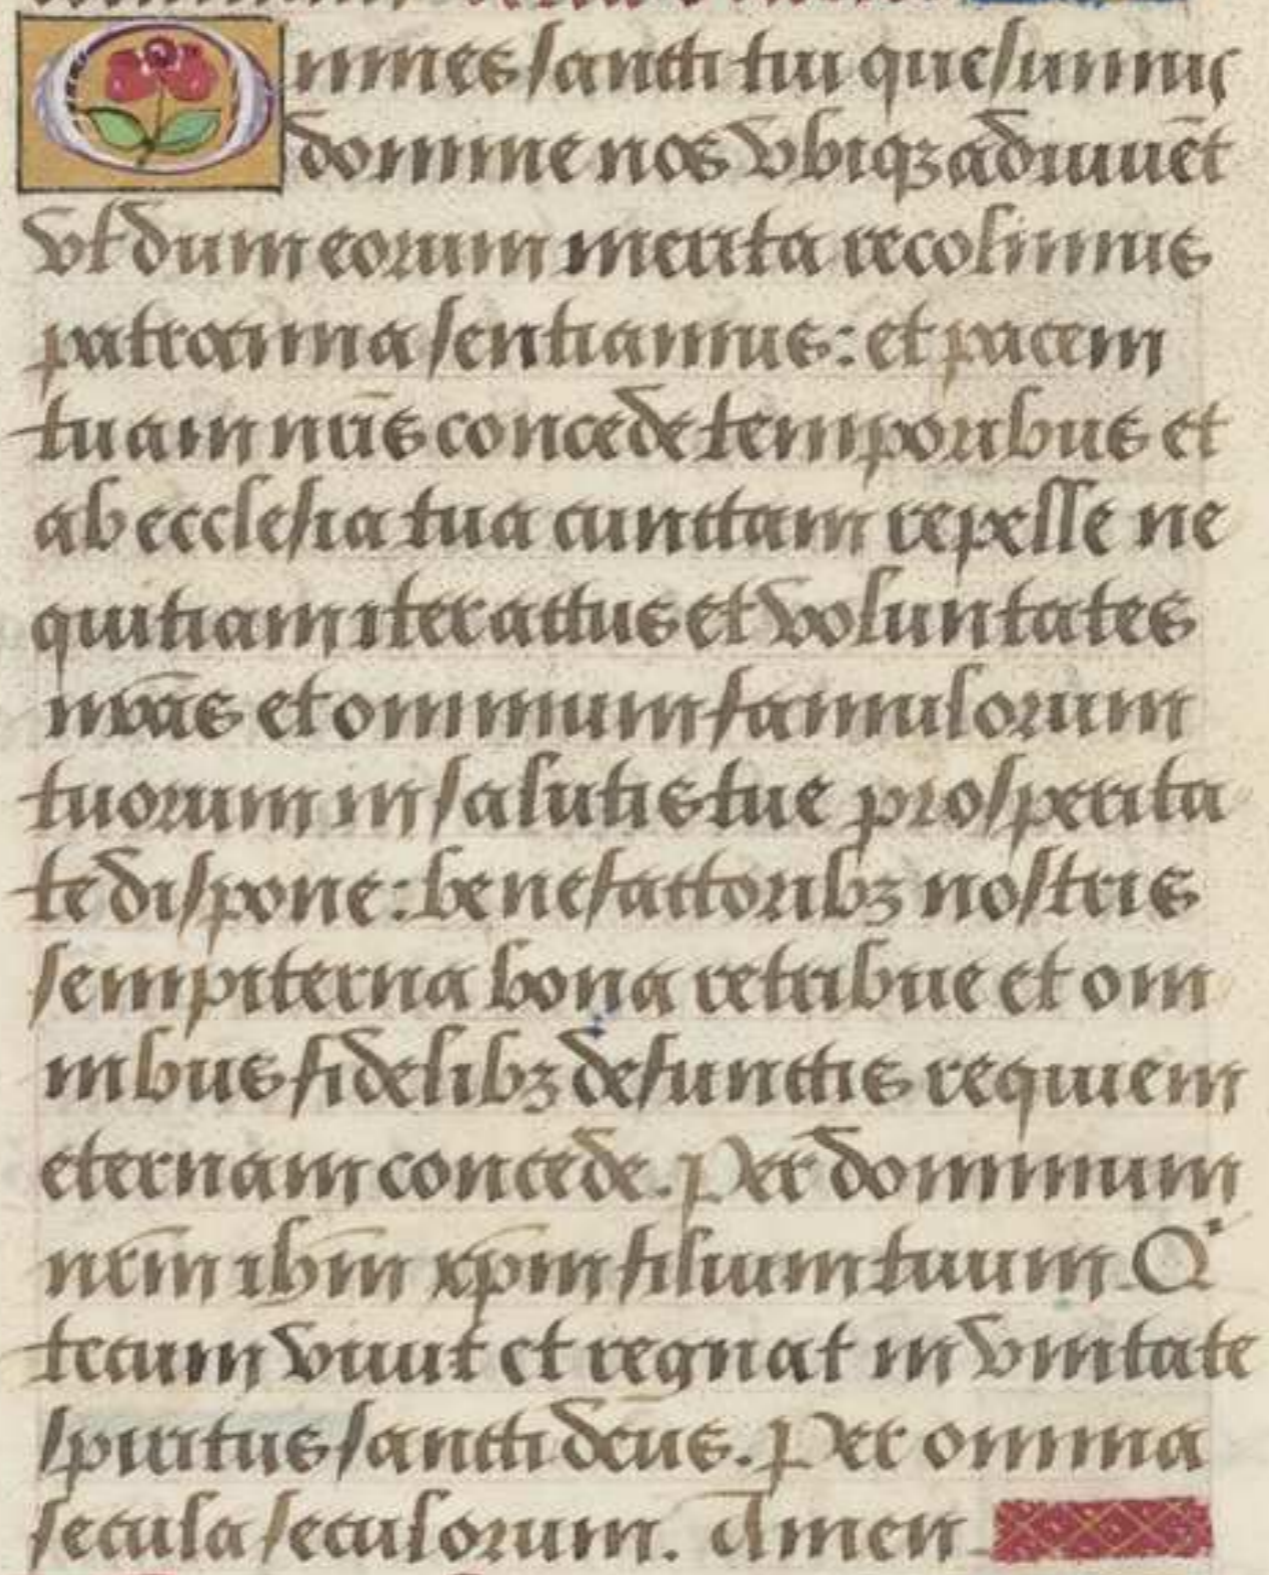 Omnes sancti tui quesumus
domine nos vbiqꝫ adiuuēt
vt dum eorum merita recolimus
patrocinia sentiamus: et pacem
tuam nr̄is concede temporibus et
ab ecclesia tua cunctam repelle ne
quitiam iter actus et voluntates
nr̄as et omnium famulorum
tuorum in salutis tue prosperita
te dispone: benefactoribꝫ nostris
sempiterna bona retribue et om
nibus fidelibꝫ defunctis requiem
eternam concede. Per dominum
nr̄m ihm̄ xp̄m filium tuum Qⁱ
tecum viuit et regnat in vnitate
spiritus sancti deus. Per omnia
secula seculorum. Amen